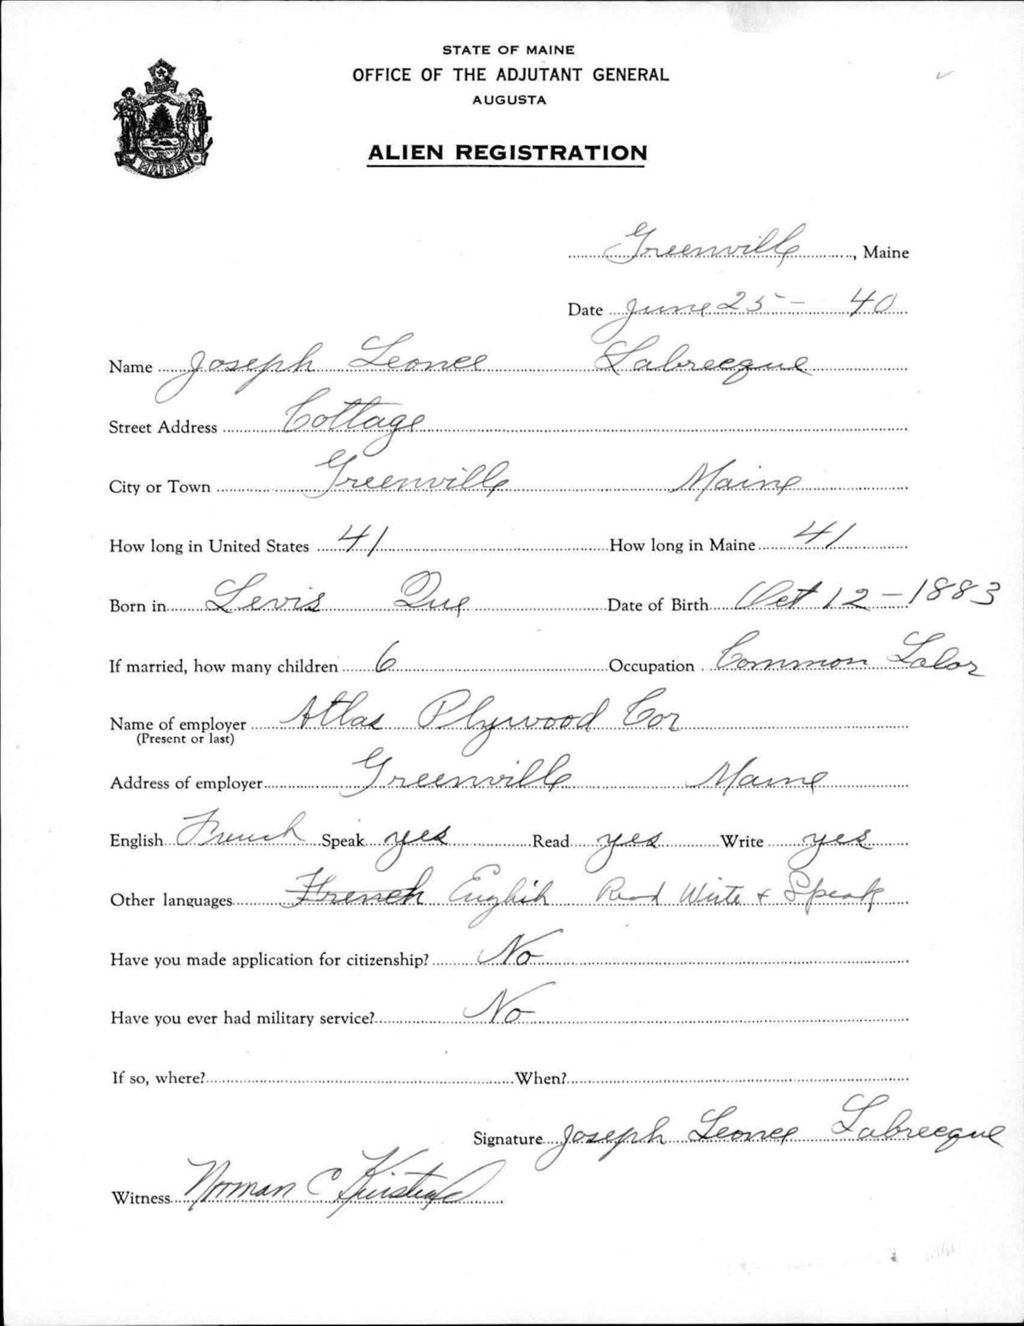 STATE OF MAINE
OFFICE OF THE ADJUTANT GENERAL
AUGUSTA
ALIEN REGISTRATION
Greenville, Maine
Date June 25 - 40
Name Joseph Leonce Labrecque
Street Address Cottage
City or Town Greenville Maine
How long in United States 41 How long in Maine 41
Born in Levis Que Date of Birth Oct 12 - 1883
If married, how many children 6 Occupation Common Labor
Name of employer Atlas Plywood Cor
(Present or last)
Address of employer Greenville Maine
English French Speak yes Read yes Write yes
Other languages French English Read Write + Speak
Have you made application for citizenship? No
Have you ever had military service? No
If so, where? When?
Signature Joseph Leonce Labrecque
Witness Norman C